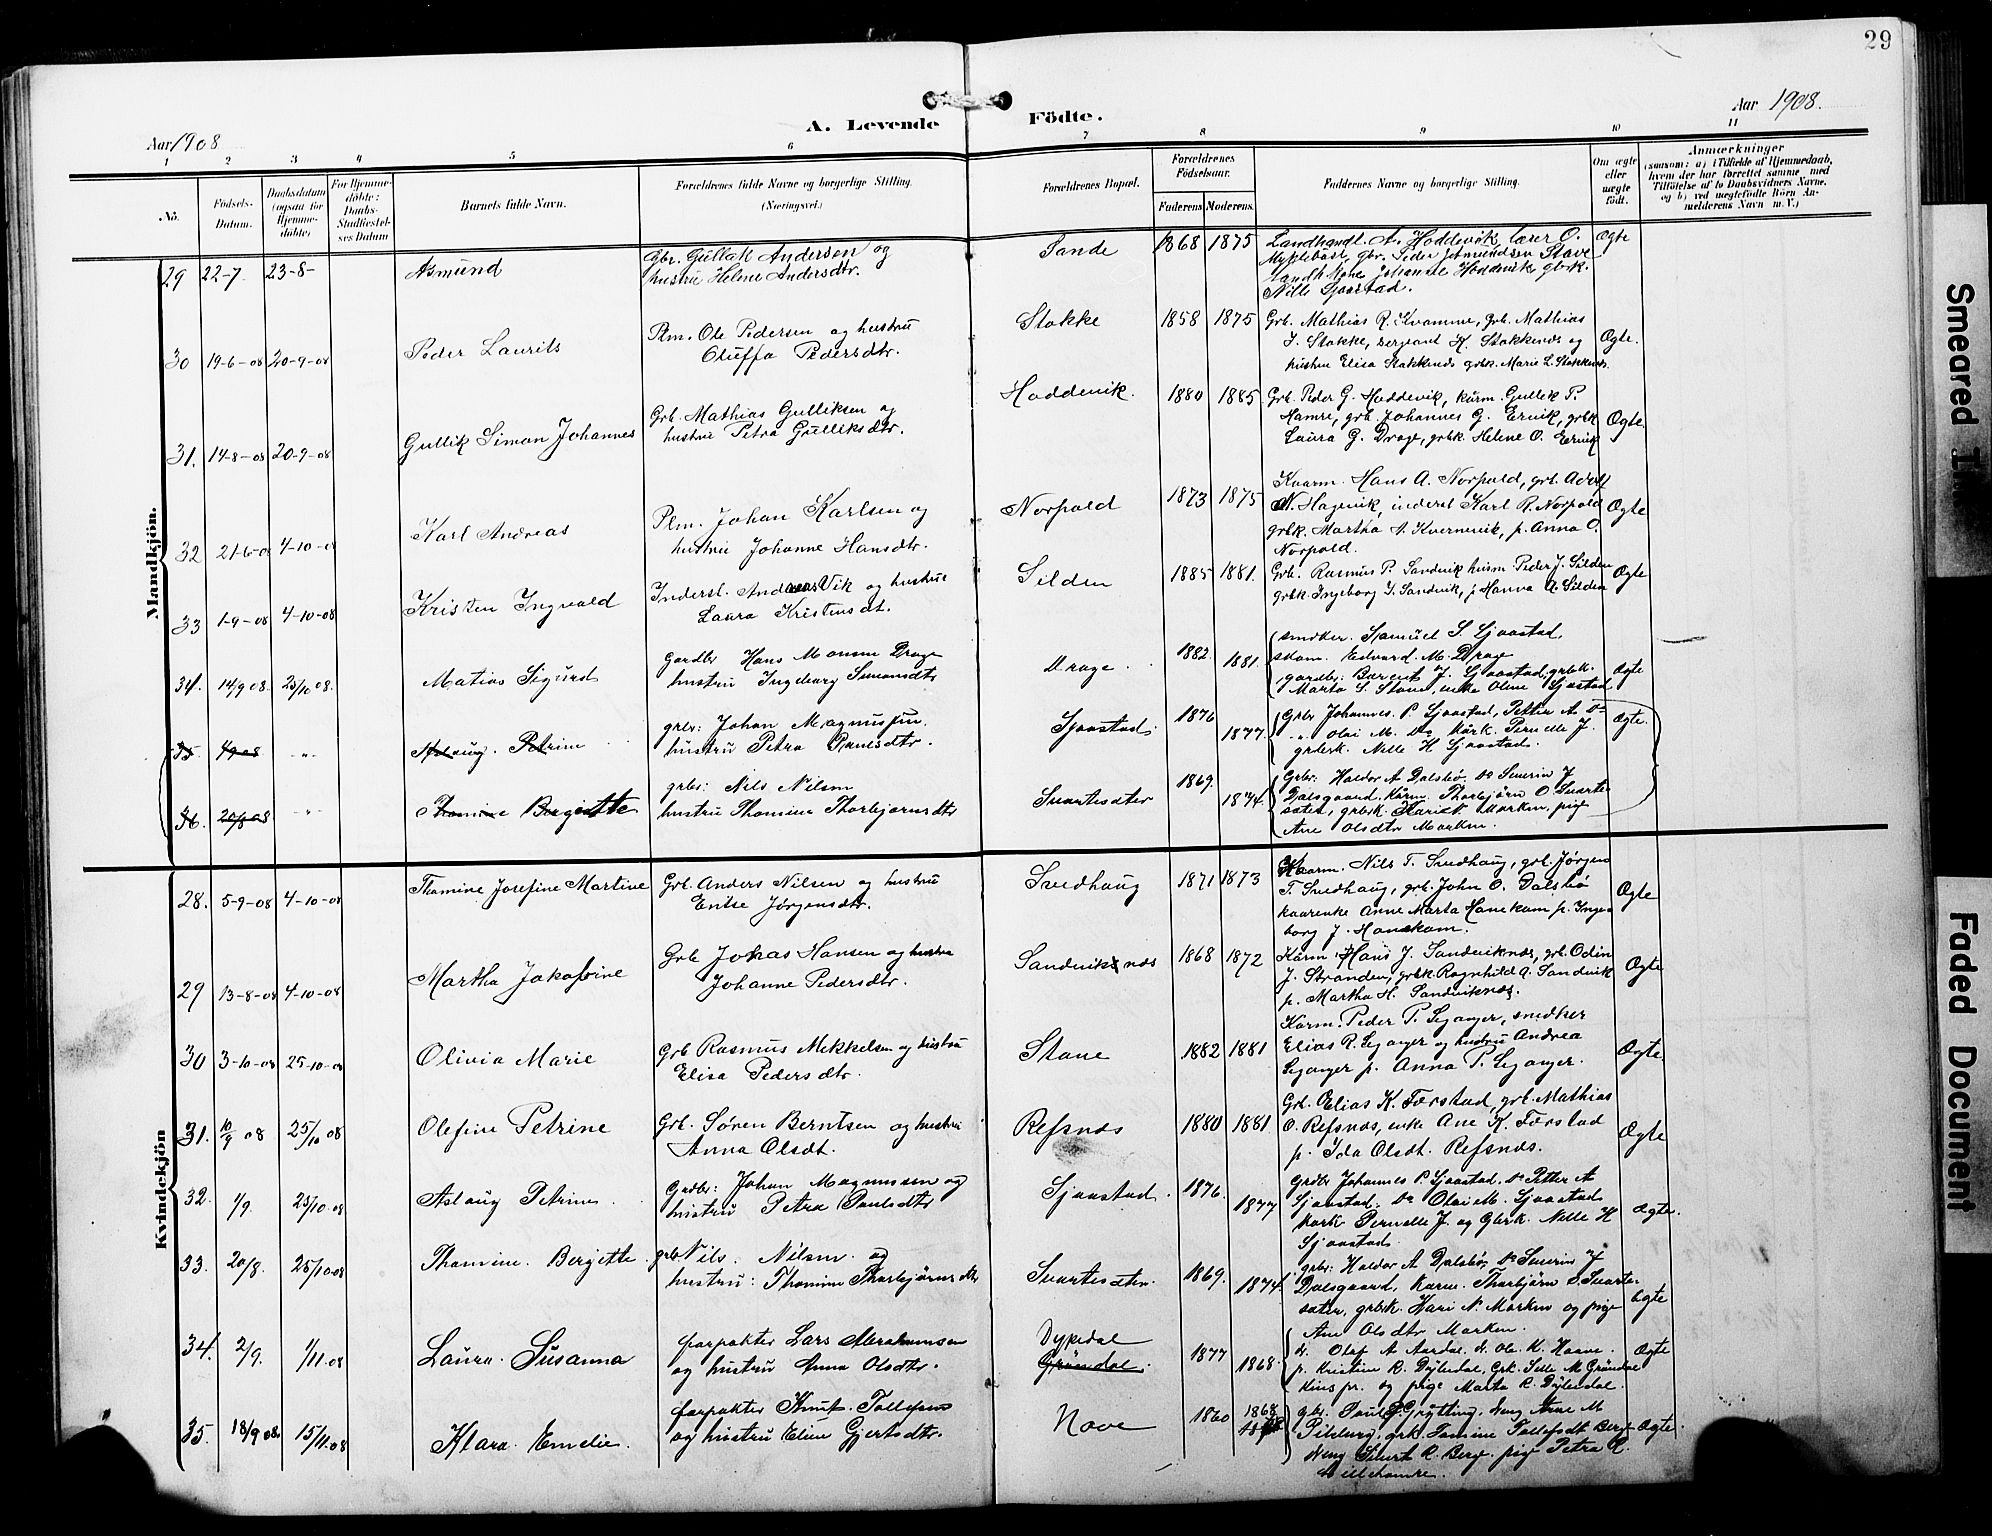 29
Aar 1908
A. Levende Födte.
Aar 1908.
1 2 3 4 5 6 7 8 9 10 11
No.
Födsels-Datum.
Daabsdatum (ogsaa for Hjemme-döbte)
For Hjemme-döbte: Daabs-Stadfæstel-ses Datum
Barnets fulde Navn.
Forældrenes fulde Navne og borgerlige Stilling. (Næringsvei.)
Forældrenes Bopæl.
Forældrenes Födselsaar.
Faderens. Moderens.
Faddernes Navne og borgerlige Stilling.
Om ægte eller uægte födt.
Anmærkninger
(saasom: a) i Tilfælde af Hjemmedaab, hvem der har forrettet samme med Tilföielse af to Daabsvidners Navne, og b) ved uægtefödte Börn An-melderens Navn m. V.)
Mandkjön.
29 22-7. 23-8- Asmund
Gbr. Gullak Andersen og
hustru Helene Andersdtr.
Sande 1868 1875
Landhandl. A. Hoddevik, lærer O.
Myklebust, gbr. Peder Asmundsen Stave
landh. kone Johanne Hoddevik gbrk.
Nille Sjaastad.
Ægte
30 19-6-08 20-9-08 Peder Laurits
Plm. Ole Pedersen og hustru
Oluffa Pedersdtr.
Stokke 1858 1875
Grb. Mathias R. Kvamme, grb. Mathias
J. Stokke, sergeant K. Stokkenes og
hustru Elisa Stokkenes grbk. Marie L. Stokkenes.
Ægte.
31. 14-8-08 20-9-08 Gullik Simon Johannes
Grb. Mathias Gulliksen og
hustru Petra Gulliksdtr.
Hoddevik. 1880 1885
Grb. Peder G. Hoddevik, kårm. Gullik P.
Hamre, grb Johannes G. Ervik, grbk
Laura G. Drage, grbk. Helene O. Ervik
Ægte
32 21-6-08 4-10-08 Karl Andreas
Plm. Johan Karlsen og
hustru Johanne Hansdtr.
Norpold 1873 1875
Kaarm. Hans A. Norpold, grb. Adolf
N. Hagevik, inderst Karl R. Norpold
grbk. Martha A. Kvernevik, p. Anna O.
Norpold.
Ægte
33 1-9-08 4-10-08 Kristen Ingvald
Inderst. Andreas Vik og hustru
Laura Kristensdt.
Silden 1885 1881.
Grb. Rasmus P. Sandvik husm. Peder J. Silden
grbk. Ingeborg J. Sandvik, p Hanna A. Silden
Ægte
34. 14/9 08. 25/10 08. Matias Sigurd
Gardbr Hans Monsen Drage
hustru Ingeborg Simonsdtr
Drage. 1882. 1881.
smeker. Samuel S. Sjaastad.
skom. Edvard M. Drage
gardbr: Berent J. Sjaastad, grbk.
Marta S. Stave, enke Oline Sjastad
Ægte
35 1/9 08 -"- Aslaug. Petrine
grbr: Johan Magnussen.
hustru Petra Paulsdtr.
Sjaastad. 1876 1877.
Grbr Johannes. P. Sjaastad, Petter A Do
" Olai M. Do Kårk. Pernelle J.
grbrk. Nelle H Sjaastad.
Ægte.
36. 20/8 08 -"- Thomine Bergitte
grbr: Nils Nilsen
hustru Thomine Thorbjørnsdtr
Svartesæter 1869. 1874.
Grbr: Haldor A Dalsbø, Do Severin J
Dalsgaard, Kårm. Thorbjørn O Svarte-
sæter, grbrk. Mørken, pige
Ane Olsdtr Mørken.
Kvindekjön
28. 5-9-08 4-10-08 Thomine Josefine Martine
Grb. Anders Nilsen og hustru
Entse Jørgensdtr.
Svedhaug 1871 1873
Kaarm. Nils T. Svedhaug, grb. Jørgen
T. Svedhaug, grb. John O. Dalsbø
kaarenke Anne Marta Hanekam p. Inge-
borg J. Hanekam.
Ægte
29 13-8-08 4-10-08 Martha Jakobine
Grb Johas Hansen og hustru
Johanne Pedersdtr.
Sandviknæs 1868 1872
Kårm Hans J. Sandviknæs, grb. Odin
J. Stranden, grbk Ragnhild A. Sandvik
p. Martha H. Sandviknæs.
Ægte
30 3-10-08 25-10-08 Olivia Marie
Grb Rasmus Mikkelsen og hustru
Elisa Pedersdtr.
Stave 1882 1881
Karm. Peder P. Leganger, snedker
Elias R. Leganger og hustru Andrea
Leganger p. Anna P. Leganger.
Ægte
31. 10/9 08 25/10 08 Olefine Petrine
Grb. Søren Berntsen og hustru
Anna Olsdt.
Refsnæs 1880 1881
Grb. Elias K. Førstad, grb. Mathias
O. Refsnæs, enke Ane K. Førstad
p. Ida Olsdt. Refsnæs.
Ægte
32. 1/9. 25/10 08 Aslaug Petrine.
Grdbr: Johan Magnussen og
hustru Petra Paulsdtr
Sjaastad. 1876. 1877
Grdbr Johannes P. Sjaastad, Do Petter A
Sjaastad. Do Olai M. Sjaastad
kark Pernelle J. og Gbrk. Nille H
Sjaastad.
Ægte.
33. 20/8. 25/10 08 Thomine. Bergitte.
grb Nils. Nilsen. og
hustru: Thomine Thorbjørnsdtr
Svartesæter. 1869. 1874.
grbr: Haldor A Dalsbø, Do Severin J
Dalsgaard, Karm. Thorbjørn S. Svarte-
sæter, grbrk. Kari N. Mørken og pige
Ane Olsdtr Mørken.
Ægte
34. 2/9. 1/11-08 Laura. Susanna
forpakter Lars Abrahamsen
og hustru Anna Olsdtr.
Dypedal
Grøndal. 1877 1868.
d. Olaf A Aardal d. Ole. K. Haave.
p. Kristine R. Dypedal, Grk. Sille M Grøndal
Kinspr. og pige Marta R. Dypedal.
Ægte
35. 18/9 08. 15/11.08 Klara. Emelie.
forpakter Knut. Tollefsen
og hustru Eline Gjertsdtr.
Nove 1860 1868
gbr. Paul Grytting. Ane M
grk. Tomine Tollefsdt Berg
Sivert R. Berg. pige Petra R.
Lillehamre.
Ægte.
Smeared
Faded Document